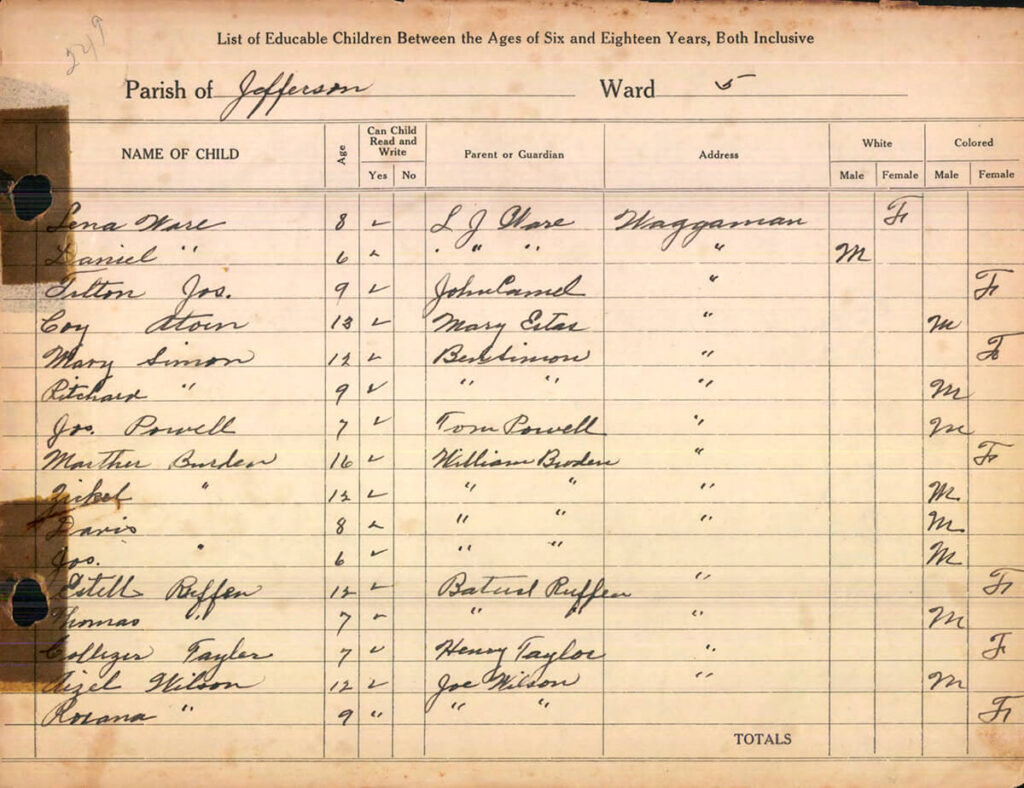 349
List of Educable Children Between the Ages of Six and Eighteen Years, Both Inclusive
Parish of Jefferson Ward 5
NAME OF CHILD Age Can Child Read and Write Yes No Parent or Guardian Address White Male Female Colored Male Female
Lena Ware 8 ✓ L J Ware Waggaman F
Daniel " 6 ✓ " " " " M
9 ✓ John " F
Coy 13 ✓ Mary Estas " M
Mary Simon 12 ✓ Ben Simon " F
Ritchard " 9 ✓ " " " M
Jos. Powell 7 ✓ Tom Powell " M
Marther Burden 16 ✓ William Burden " F
Zickel " 12 ✓ " " " M
Davis 8 ✓ " " " M
Jos. " 6 ✓ " " M
Estell Ruffen 12 ✓ Ruffen " F
Thomas " 7 ✓ " " " M
Tayler 7 ✓ Henry Taylor " F
Wilson 12 ✓ Joe Wilson " M
Rosana " 9 " " " F
TOTALS